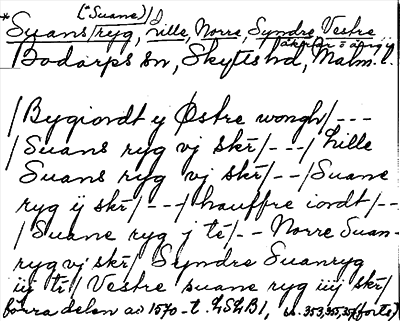 (*Suane)/d
*Suans/ryg, Lille, Norra, Syndre, Vestre
åkrar = ängj
Bodarps sn, Skytts hd, Malm. l.
/Bygiordt ÿ Østre wongh/---
/Suans ryg vj skr̄/---/Lille
Suans ryg vj skr̄/--/Suane
ryg ÿ skr̄/---/hauffre iordt/--
/Suane ryg j tr̄/-- Norre Suan-
ryg vj skr̄/ Syndre Suanryg
iÿ tr̄/ Vestre suane ryg iiÿ skr̄/
förra delen av 1570-t. LSLB1, s. 353,355,357(forts)